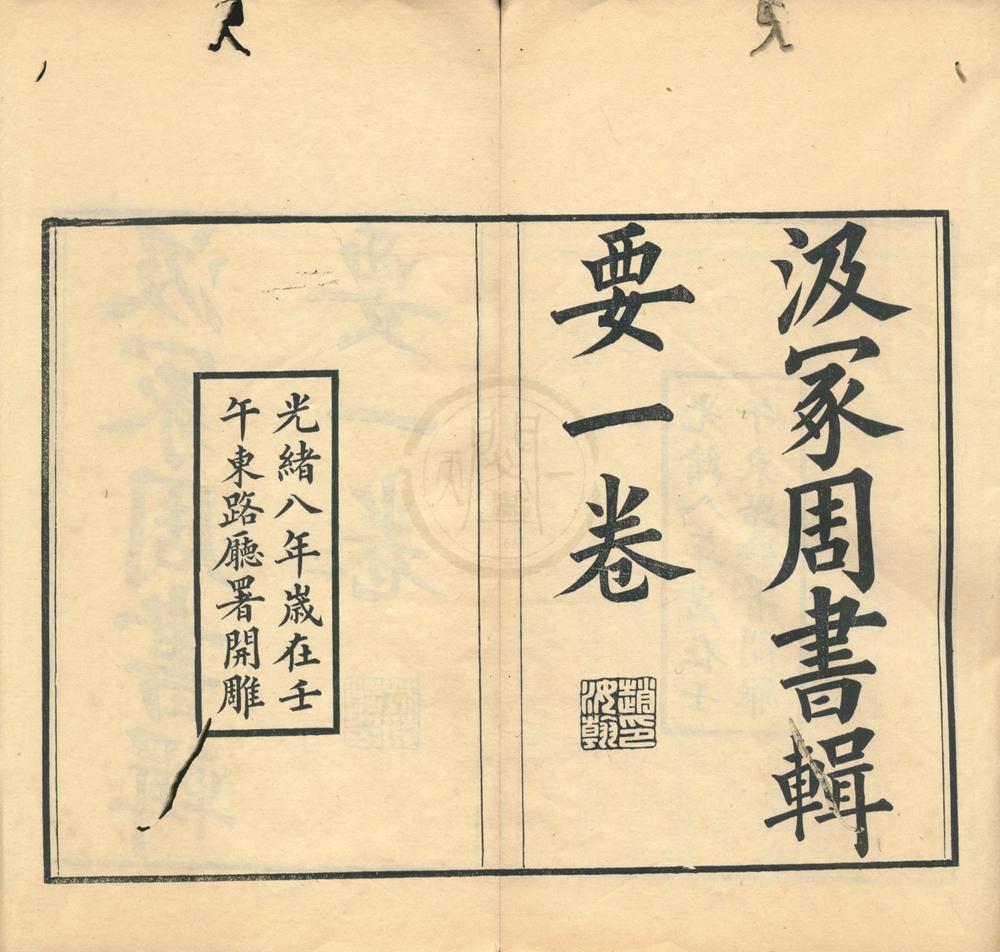 汲冢周書輯
要一卷
趙印
汝翰
光緒八年歲在壬
午東路廳署開雕